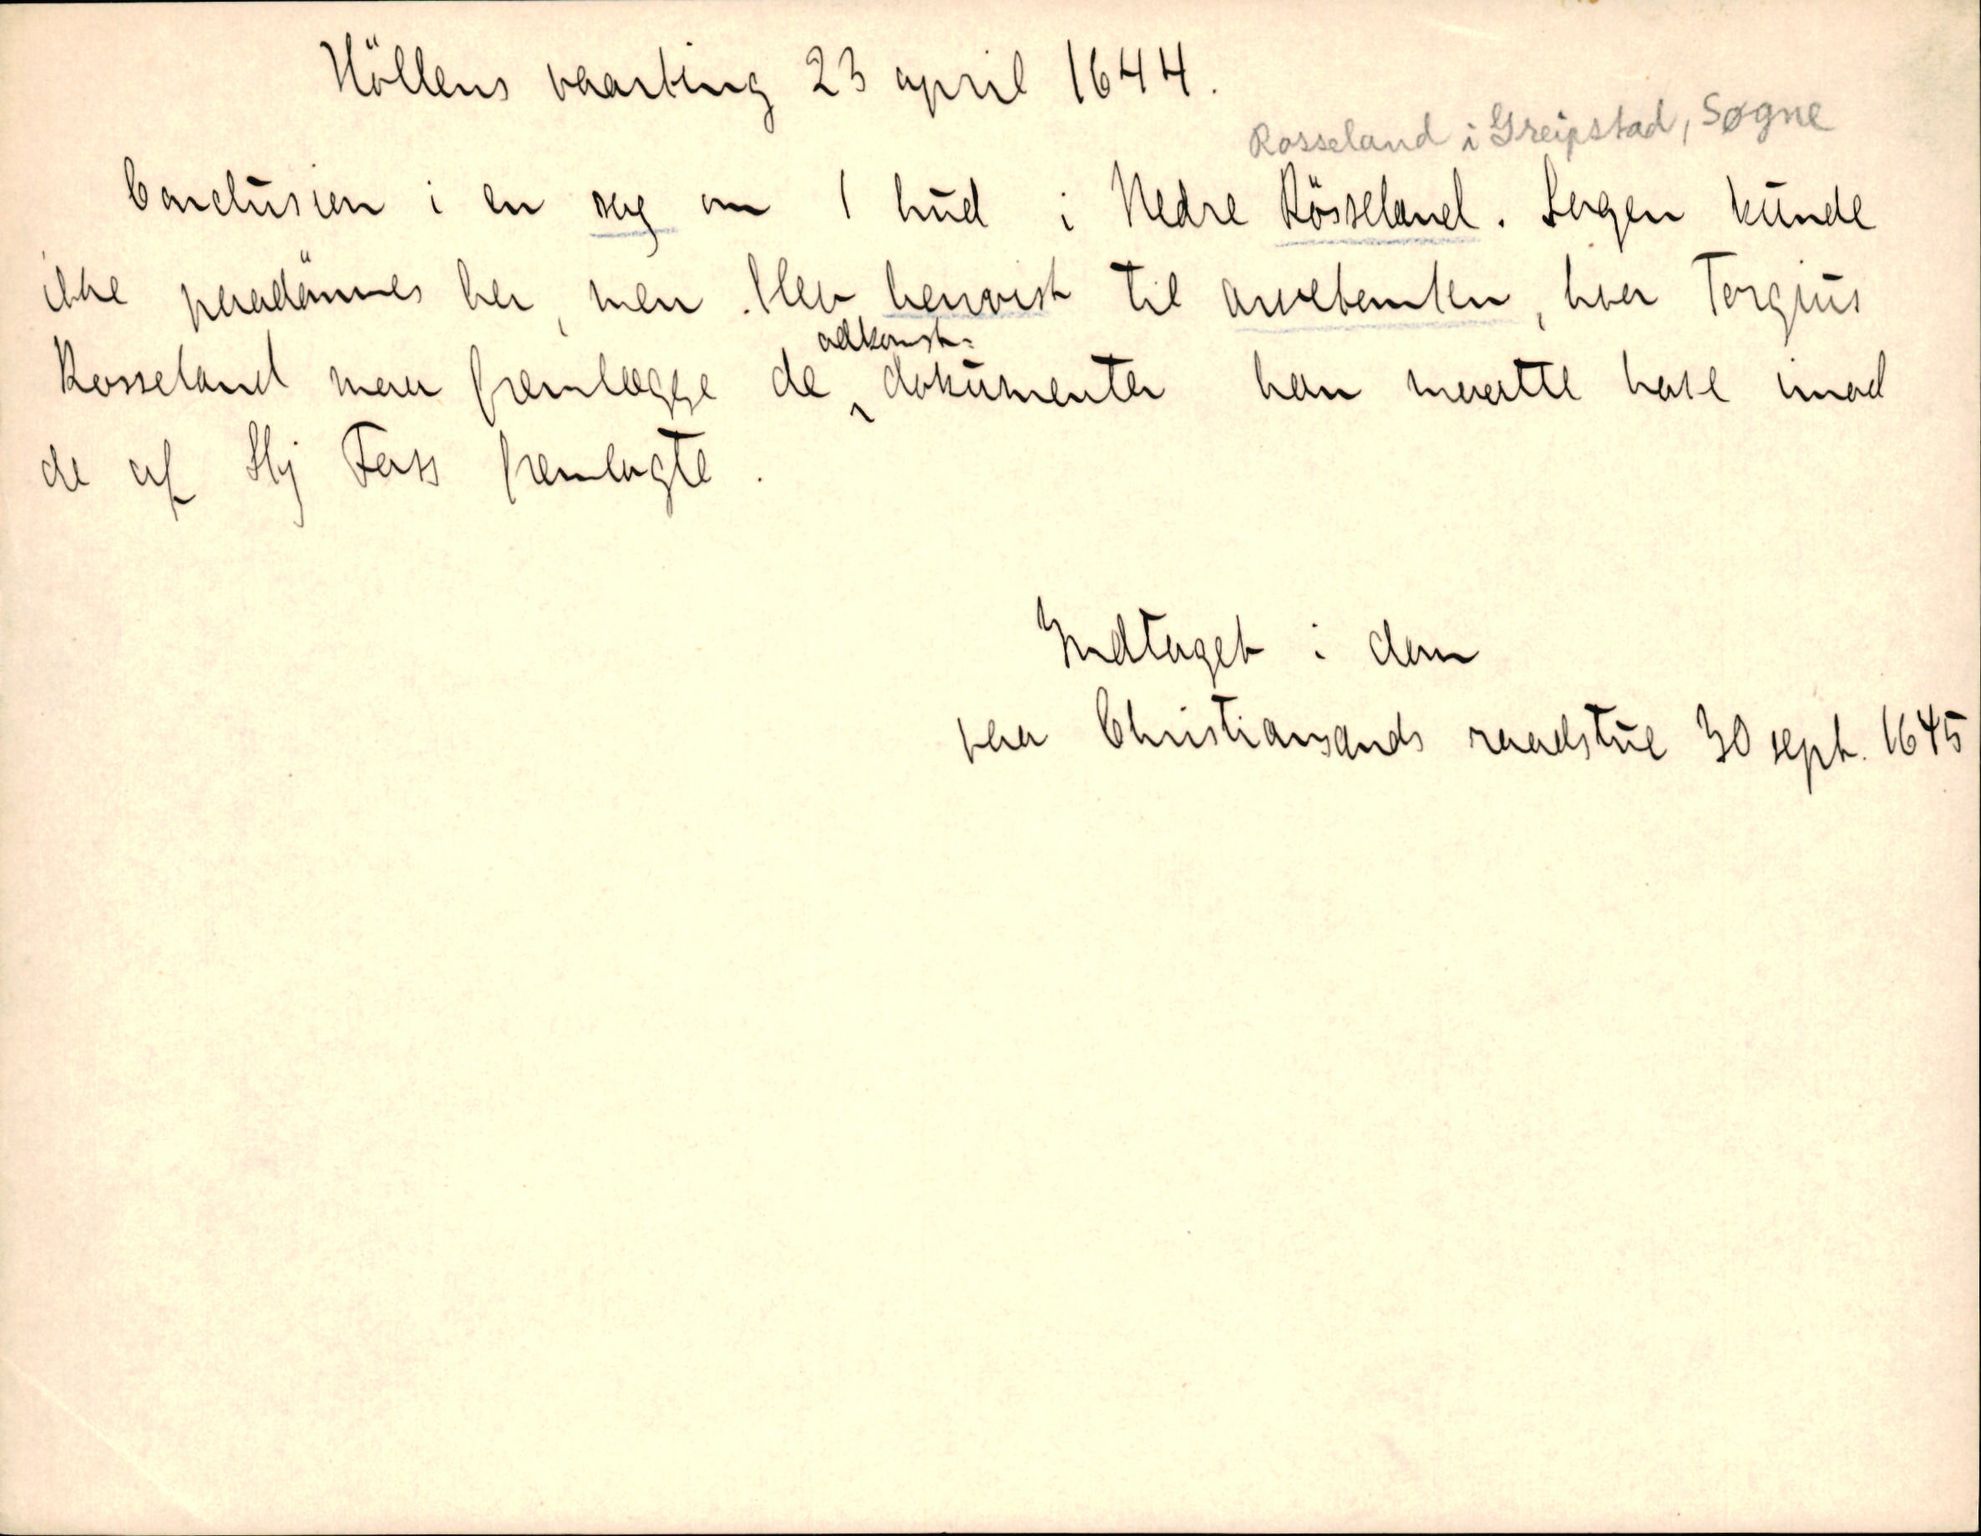 Höllens vaarting 23 april 1644.
Rosseland i Greipstad, Søgne
Conclusion i en sag om 1 hud i Nedre Rösseland. Sagen kunde
ikke paadömmes her, men blev henvist til aasteden, hvor Torgius
Rosseland maa fremlægge de adkomst=dokumenter han maatte have imod
de af Hr Fass fremlagte.
Indtaget i dom
paa Christiansands raadstue 30 sept. 1645